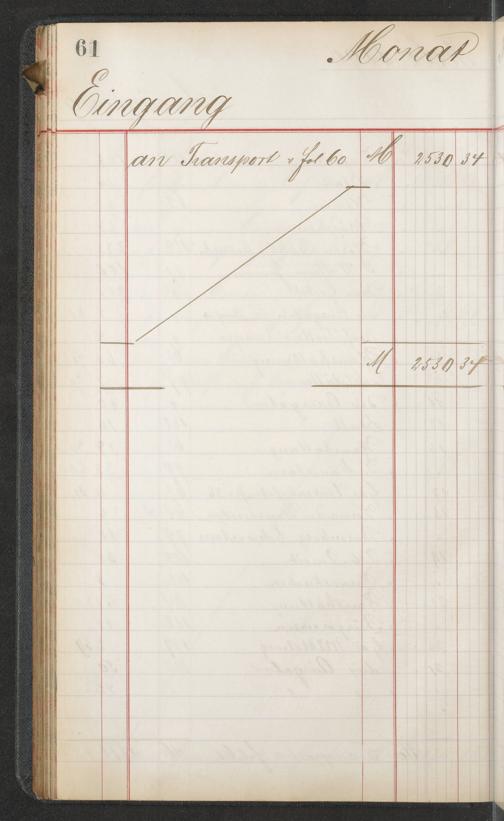 61
Monat
Eingang
an Transport v fol 60 M 2530 34
M 2530 34